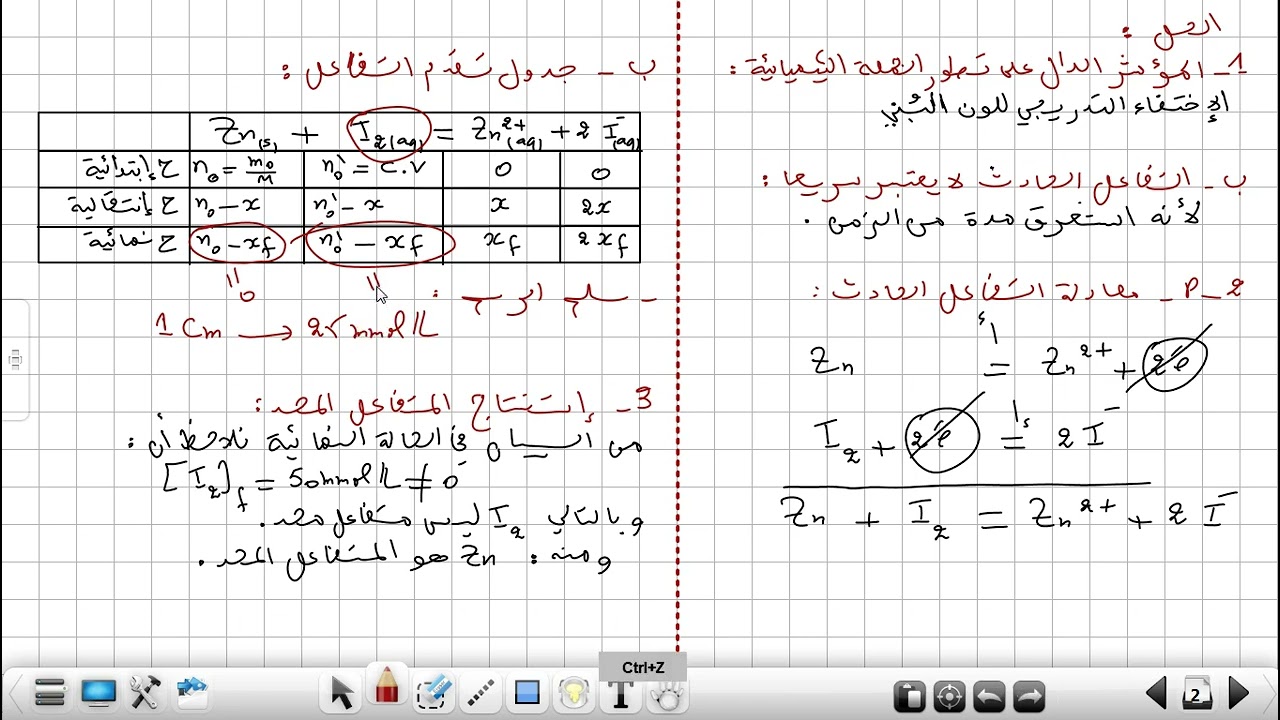 الحل :
1 - المؤشر الدال على تطور الجملة الكيميائية :
الإختفاء التدريجي للون البني
ب - التفاعل الحادث لا يعتبر سريعا :
لأنه استغرق مدة من الزمن .
2 - أ - معادلة التفاعل الحادث :
Zn =أ Zn²⁺ + 2e⁻
I₂ + 2e⁻ =إ 2I⁻
Zn + I₂ = Zn²⁺ + 2I⁻
ب - جدول تقدم التفاعل :
Zn(s) + I₂(aq) = Zn²⁺(aq) + 2I⁻(aq)
ح إبتدائية n₀ = m₀/M n₀' = C.V 0 0
ح إنتقالية n₀ - x n₀' - x x 2x
ح نهائية n₀ - xf n₀' - xf xf 2xf
" "
0
- سلم الرسم :
1 Cm → 25 mmol/L
3 - إستنتاج المتفاعل المحد :
من البيان في الحالة النهائية نلاحظ أن :
[I₂]f = 50 mmol/L ≠ 0
وبالتالي I₂ ليس متفاعل محد .
ومنه : Zn هو المتفاعل المحد .
Ctrl+Z
T
2